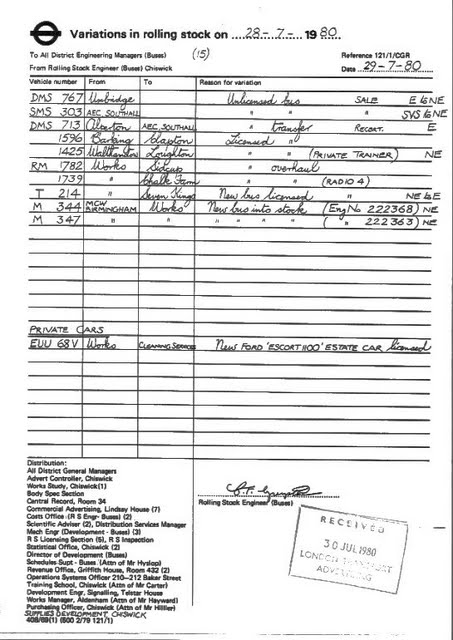 Variations in rolling stock on 28-7-1980.
To All District Engineering Managers (Buses) (15) Reference 121/1/CGR
From Rolling Stock Engineer (Buses) Chiswick Date 29-7-80
Vehicle number From To Reason for variation
DMS 767 Uxbridge Unlicensed bus SALE E & NE
SMS 303 AEC, SOUTHALL " " SVS & NE
DMS 713 Alperton AEC, SOUTHALL " transfer RECERT. E
1596 Barking Clapton Licensed "
1425 Walthamstow Loughton " " (PRIVATE TRAINER) NE
RM 1782 Works Sidcup " overhaul
1739 " Chalk Farm " " (RADIO 4)
T 214 Seven Kings New bus licensed " NE & E
M 344 MCW BIRMINGHAM Works New bus into stock (Eng No 222368) NE
M 347 " " " " " " ( " 222363) NE
PRIVATE CARS
EUU 68V Works CLEANING SERVICES New FORD 'ESCORT 1100' ESTATE CAR licensed
Distribution:
All District General Managers
Advert Controller, Chiswick
Works Study, Chiswick(1)
Body Spec Section
Central Record, Room 34
Commercial Advertising, Lindsay House (7)
Costs Office (R S Engr- Buses) (2)
Scientific Adviser (2), Distribution Services Manager
Mech Engr (Development- Buses) (3)
R S Licensing Section (5), R S Inspection
Statistical Office, Chiswick (2)
Director of Development (Buses)
Schedules Supt - Buses (Attn of Mr Hyslop)
Revenue Office, Griffith House, Room 432 (2)
Operations Systems Officer 210–212 Baker Street
Training School, Chiswick (Attn of Mr Carter)
Development Engr, Signalling, Telstar House
Works Manager, Aldenham (Attn of Mr Hayward)
Purchasing Officer, Chiswick (Attn of Mr Hillier)
SUPPLIES DEVELOPMENT CHISWICK
408/89(1) (500 2/79 121/1)
Rolling Stock Engineer (Buses)
RECEIVED
30 JUL 1980
LONDON TRANSPORT
ADVERTISING